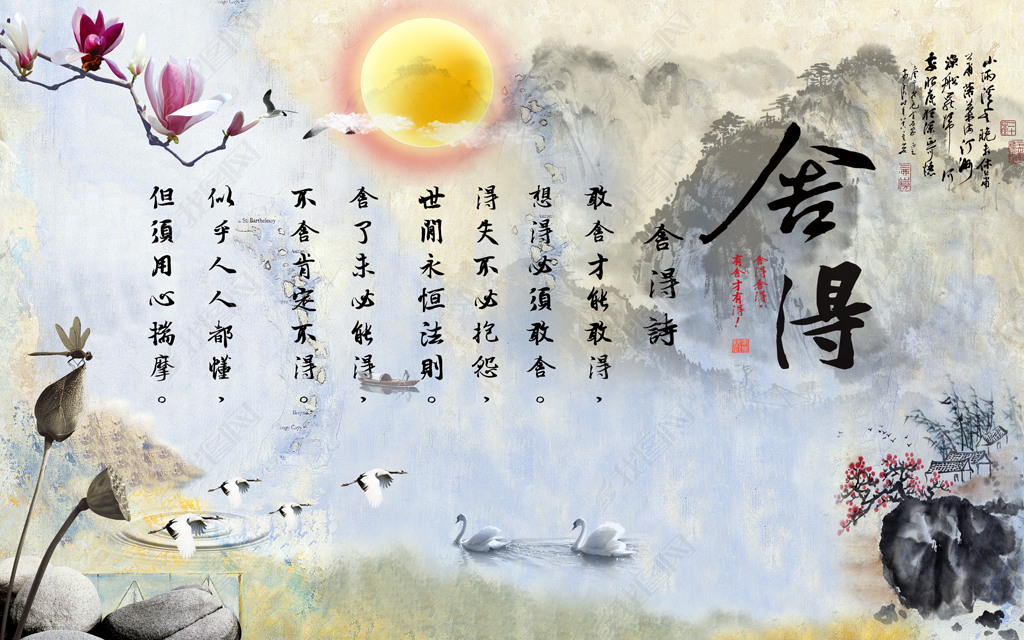 舍
得
舍得舍得，
有舍才有得！
舍得詩
敢舍才能敢得，
想得必須敢舍。
得失不必抱怨，
世間永恒法則。
舍了未必能得，
不舍肯定不得。
似乎人人都懂，
但須用心揣摩。
St. Barthelemy